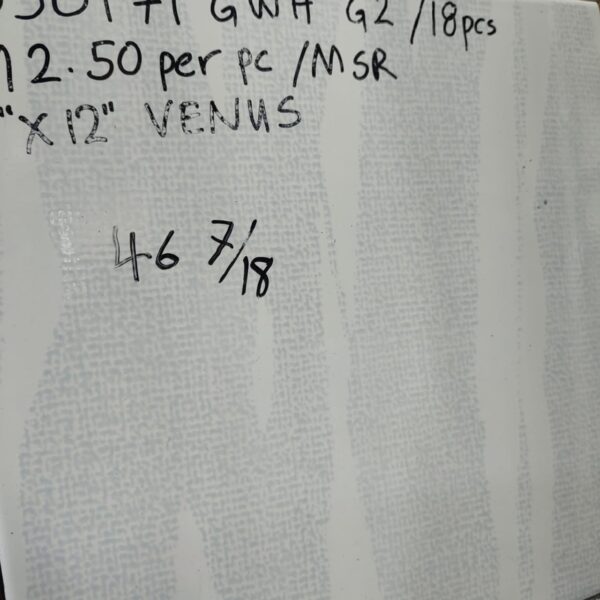 GWH G2 /18pcs
2.50 per pc /MSR
"X12" VENUS
46 7/18